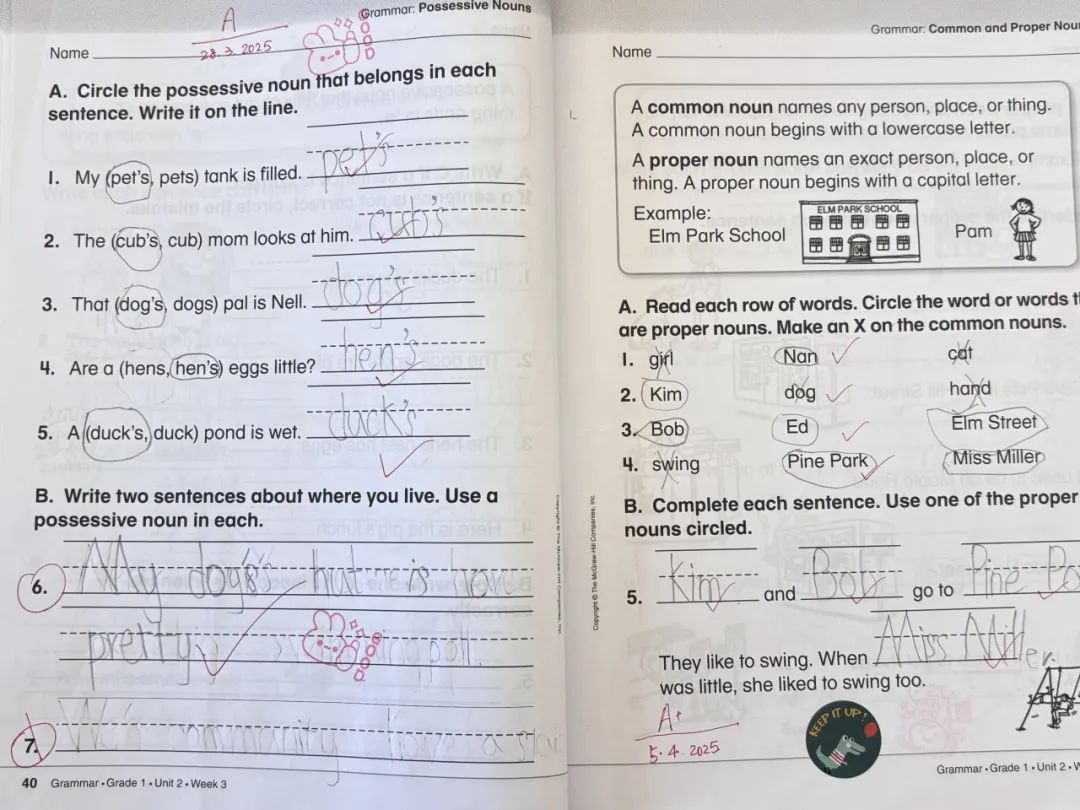 A
28.3.2025
Grammar: Possessive Nouns
Name
A. Circle the possessive noun that belongs in each
sentence. Write it on the line.
1. My (pet's, pets) tank is filled. pet's
2. The (cub's, cub) mom looks at him. cub's
3. That (dog's, dogs) pal is Nell. dog's
4. Are a (hens, hen's) eggs little? hen's
5. A (duck's, duck) pond is wet. duck's
B. Write two sentences about where you live. Use a
possessive noun in each.
6. My dog's hut is
pretty
7. We's a
40 Grammar • Grade 1 • Unit 2 • Week 3
Copyright © The McGraw-Hill Companies, Inc.
Grammar: Common and Proper Nou
Name
A common noun names any person, place, or thing.
A common noun begins with a lowercase letter.
A proper noun names an exact person, place, or
thing. A proper noun begins with a capital letter.
Example:
Elm Park School
ELM PARK SCHOOL
Pam
A. Read each row of words. Circle the word or words t
are proper nouns. Make an X on the common nouns.
1. girl Nan cat
2. Kim dog hand
3. Bob Ed Elm Street
4. swing Pine Park Miss Miller
B. Complete each sentence. Use one of the proper
nouns circled.
5. Kim and Bob go to Pine Pa
They like to swing. When Miss Miller
was little, she liked to swing too.
A+
5.4.2025
KEEP IT UP!
Grammar • Grade 1 • Unit 2 • W